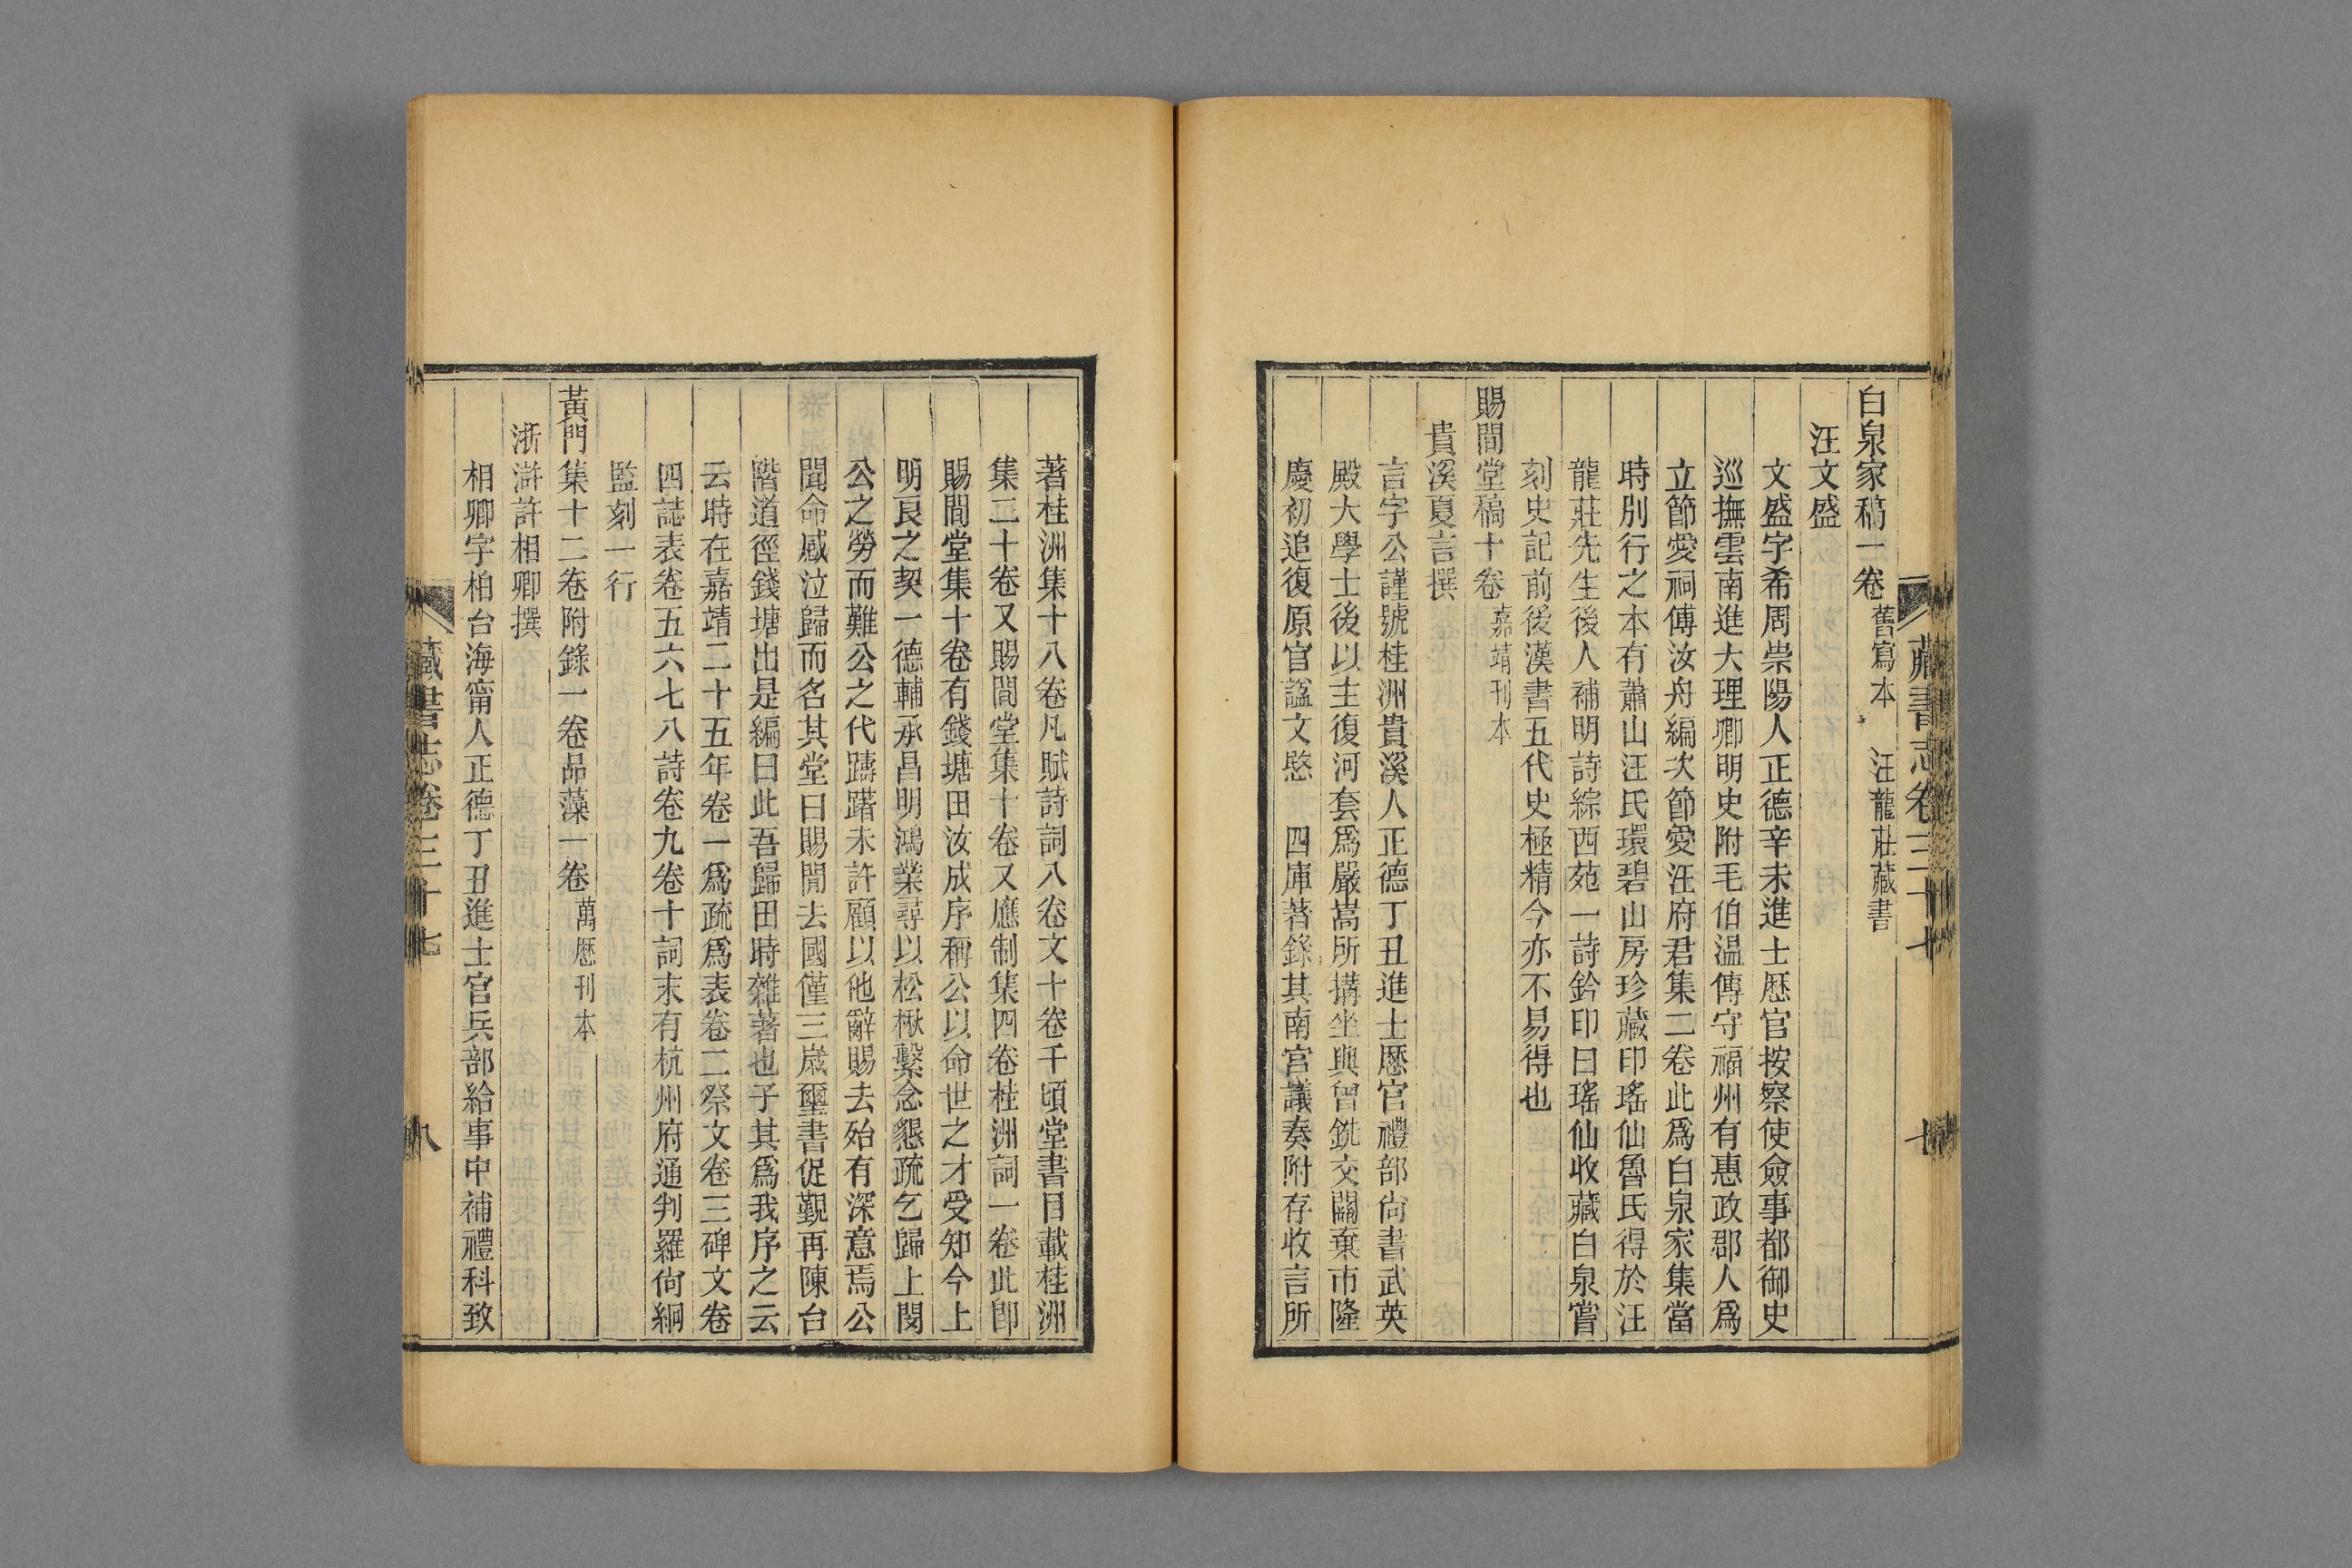 藏書志卷三十七
白泉家稿一卷 舊寫本 汪龍莊藏書
汪文盛
文盛字希周崇陽人正德辛未進士歷官按察使僉事都御史
巡撫雲南進大理卿明史附毛伯溫傳守福州有惠政郡人為
立節愛祠傅汝舟編次節愛汪府君集二卷此爲白泉家集當
時別行之本有蕭山汪氏環碧山房珍藏印瑤仙魯氏得於汪
龍莊先生後人補明詩綜西苑一詩鈐印曰瑤仙收藏白泉嘗
刻史記前後漢書五代史極精今亦不易得也
賜閒堂稿十卷 嘉靖刊本
貴溪夏言撰
言字公謹號桂洲貴溪人正德丁丑進士歷官禮部尙書武英
殿大學士後以主復河套爲嚴嵩所搆坐與曾銑交關棄市隆
慶初追復原官諡文愍 四庫著錄其南宮議奏附存收言所
著桂洲集十八卷凡賦詩詞八卷文十卷千頃堂書目載桂洲
集二十卷又賜閒堂集十卷又應制集四卷桂洲詞一卷此卽
賜閒堂集十卷有錢塘田汝成序稱公以命世之才受知今上
明良之契一德輔承昌明鴻業尋以松楸繫念懇疏乞歸上閔
公之勞而難公之代躊躇未許顧以他辭賜去殆有深意焉公
聞命感泣歸而名其堂曰賜閒去國僅三歲璽書促覲再陳台
階道徑錢塘出是編曰此吾歸田時雜著也子其爲我序之云
云時在嘉靖二十五年卷一爲疏爲表卷二祭文卷三碑文卷
四誌表卷五六七八詩卷九卷十詞末有杭州府通判羅尙絅
監刻一行
黃門集十二卷附錄一卷品藻一卷 萬歷刊本
浙滸許相卿撰
相卿字柏台海甯人正德丁丑進士官兵部給事中補禮科致
藏書志卷三十七
八